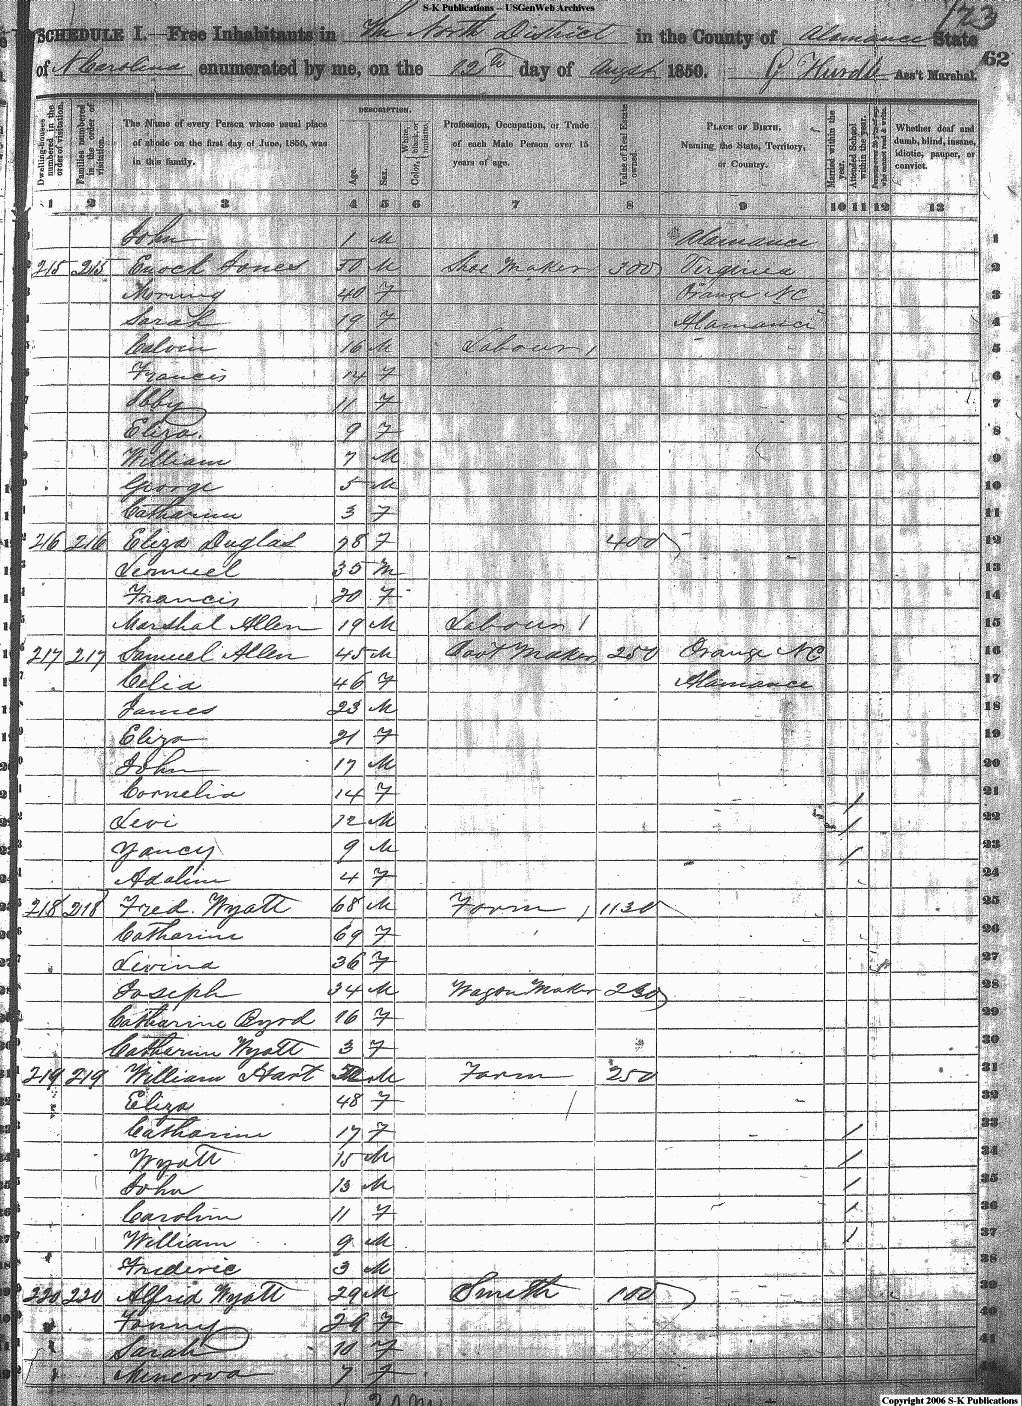 S-K Publications -- USGenWeb Archives
173
SCHEDULE I.—Free Inhabitants in The North District in the County of Alamance State
of N Carolina enumerated by me, on the 12th day of August 1850. G Hurdle Ass't Marshal.
62
Dwelling-houses numbered in the order of visitation.
Families numbered in the order of visitation.
The Name of every Person whose usual place of abode on the first day of June, 1850, was in this family.
DESCRIPTION.
Age.
Sex.
Color, White, black, or mulatto.
Profession, Occupation, or Trade of each Male Person over 15 years of age.
Value of Real Estate owned
PLACE OF BIRTH, Naming the State, Territory, or Country.
Married within the year.
Attended School within the year.
Persons over 20 y'rs of age who cannot read & write.
Whether deaf and dumb, blind, insane, idiotic, pauper, or convict.
1 2 3 4 5 6 7 8 9 10 11 12 13
John 1 M Alamance 1
215 215 Enoch Jones 50 M Shoe Maker 300 Virginia 2
Morning 40 F Orange NC 3
Sarah 19 F Alamance 4
Calvin 16 M Labour 5
Francis 14 F 6
Abby 11 F 7
Eliza 9 F 8
William 7 M 9
George 5 M 10
Catharine 3 F 11
216 216 Eliza Duglas 78 F 400 12
Lemuel 35 M 13
Francis 20 F 14
Marshal Allen 19 M Labour 15
217 217 Samuel Allen 45 M Boot Maker 250 Orange NC 16
Celia 46 F Alamance 17
James 23 M 18
Eliza 21 F 19
John 17 M 20
Cornelia 14 F 21
Levi 12 M 22
Yancy 9 M 23
Adaline 4 F 24
218 218 Fred. Wyatt 68 M Farm 1130 25
Catharine 69 F 26
Levina 36 F 27
Joseph 34 M Wagon Maker 230 28
Catharine Byrd 16 F 29
Catharine Wyatt 3 F 30
219 219 William Hart M Farm 250 31
Eliza 48 F 32
Catharine 17 F 33
Wyatt 15 M 34
John 13 M 35
Caroline 11 F 36
William 9 M 37
Frideric 3 M 38
220 220 Alfrid Wyatt 29 M Smith 100 39
Fanny 29 F 40
Sarah 10 F 41
Minerva 7 F
Copyright 2006 S-K Publications